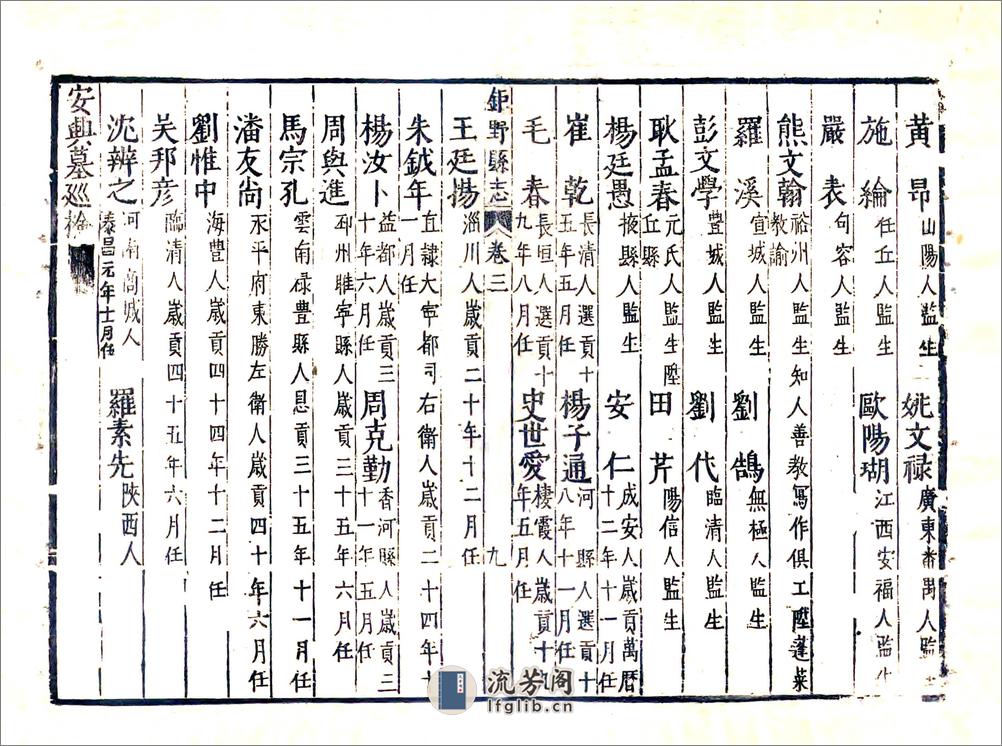 黃昂 山陽人監生 姚文禄 廣東番禺人監
施綸 任丘人監生 歐陽瑚 江西安福人監生
嚴表 句容人監生
熊文翰 裕州人監生知人善教寫作俱工陞蓬萊教諭
羅溪 宣城人監生 劉鵠 無極人監生
彭文學 豐城人監生 劉代 臨清人監生
耿孟春 元氏人監生陞丘縣 田芹 陽信人監生
楊廷愚 掖縣人監生 安仁 成安人歲貢萬曆十二年十一月任
崔乾 長清人選貢十五年五月任 楊子通 河縣人選貢十八年十一月任
毛春 長垣人選貢十九年八月任 史世愛 棲霞人歲貢十九年五月任
鉅野縣志 卷三 九
王廷揚 淄川人歲貢二十年十二月任
朱鉞年 直隸大寧都司右衛人歲貢二十四年十一月任
楊汝卜 益都人歲貢三十年六月任 周克勤 香河縣人歲貢三十一年五月任
周與進 邳州睢寧縣人歲貢三十五年六月任
馬宗孔 雲南祿豐縣人恩貢三十五年十一月任
潘友尚 永平府東勝左衛人歲貢四十年六月任
劉惟中 海豐人歲貢四十四年十二月任
吴邦彦 臨清人歲貢四十五年六月任
沈辨之 河南商城人泰昌元年十月任 羅素先 陝西人
安興墓巡檢
流芳阁
lfglib.cn